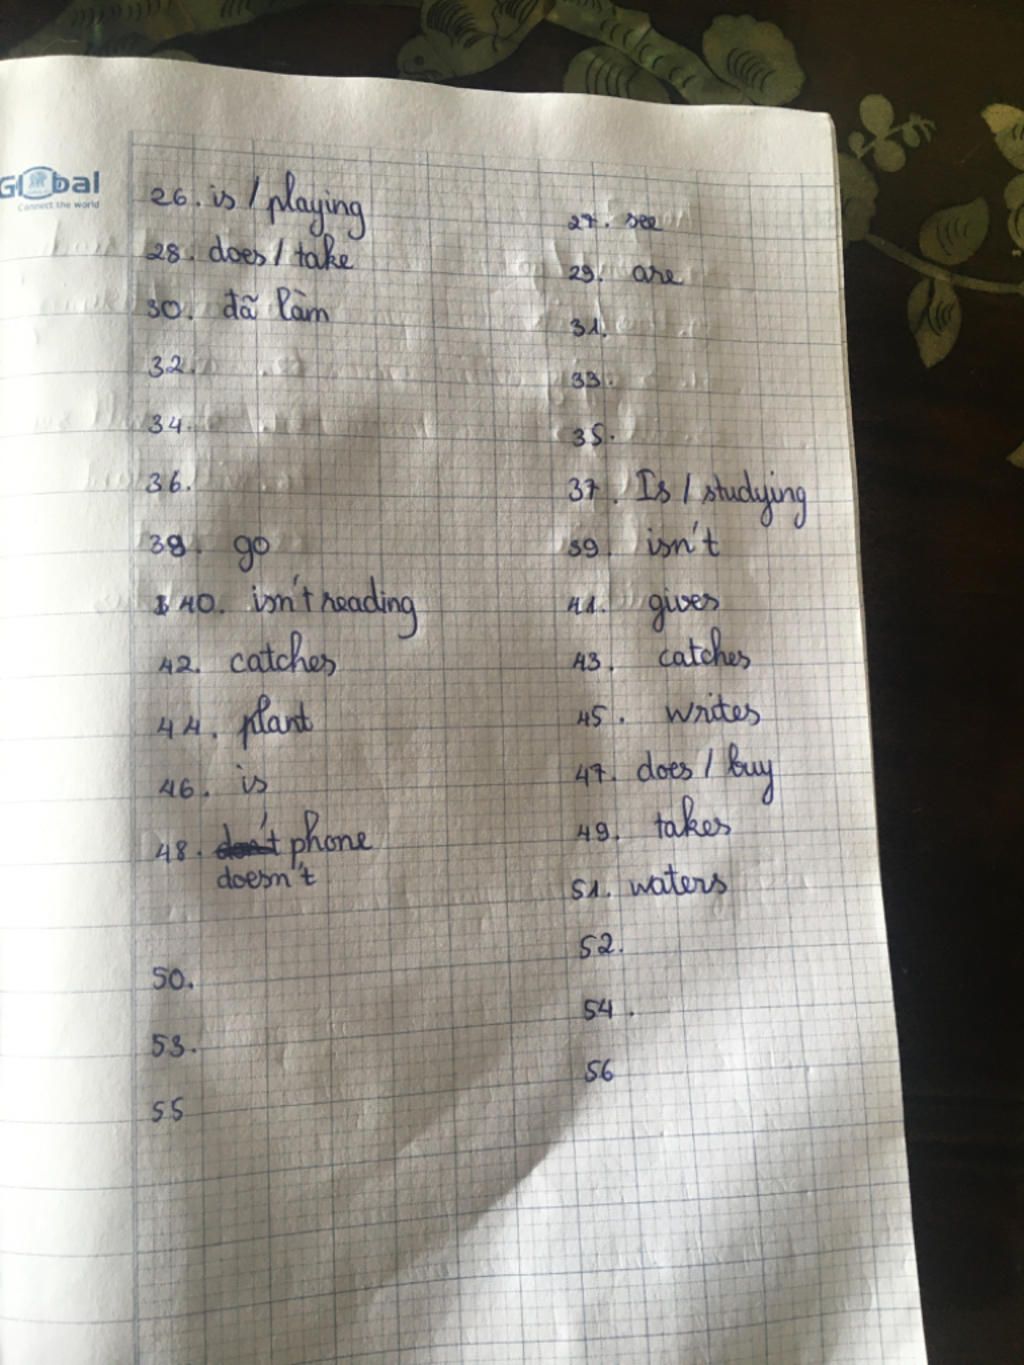 Global
Connect the world
26. is / playing
27. see
28. does / take
29. are
30. đã làm
31.
32.
33.
34.
35.
36.
37. Is / studying
38. go
39. isn't
40. isn't reading
41. gives
42. catches
43. catches
44. plant
45. writes
46. is
47. does / buy
48. don't phone
doesn't
49. takes
51. waters
50.
52.
53.
54.
55
56